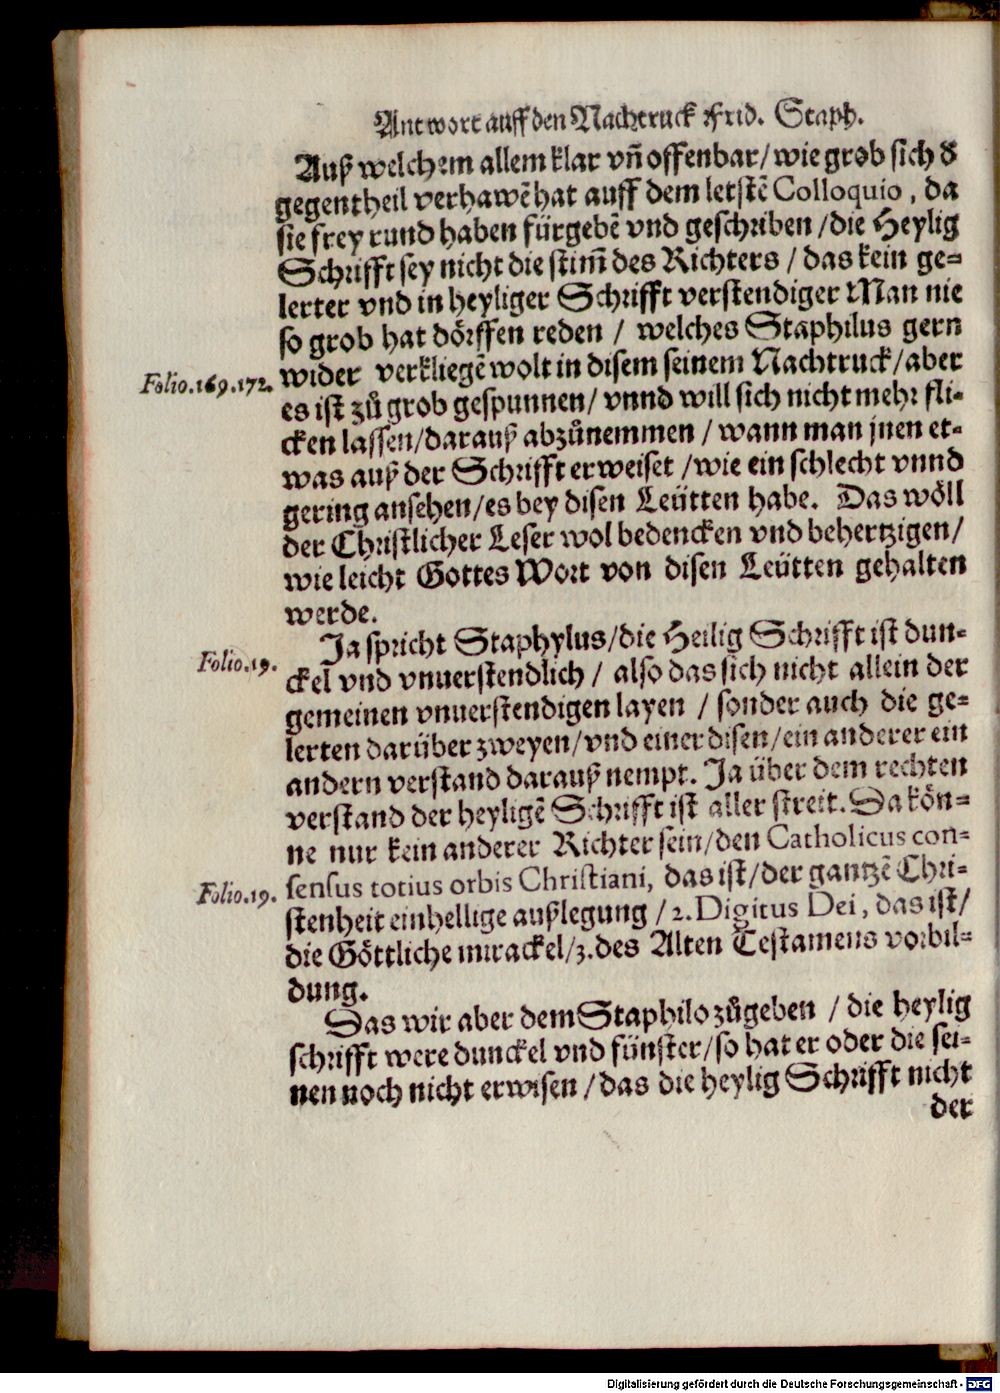 Antwort auff den Nachtruck Frid. Staph.
Auß welchem allem klar vñ offenbar/wie grob sich d
gegentheil verhawẽ hat auff dem letstẽ Colloquio, da
sie frey rund haben fürgebẽ vnd geschriben/die Heylig
Schrifft sey nicht die stim̃ des Richters/das kein ge=
lerter vnd in heyliger Schrifft verstendiger Man nie
so grob hat dörffen reden/ welches Staphilus gern
Folio.169.172. wider verkliegẽ wolt in disem seinem Nachtruck/aber
es ist zů grob gespunnen/ vnnd will sich nicht mehr fli=
cken lassen/darauß abzůnemmen/wann man jnen et=
was auß der Schrifft erweiset/wie ein schlecht vnnd
gering ansehen/es bey disen Leütten habe. Das wöll
der Christlicher Leser wol bedencken vnd behertzigen/
wie leicht Gottes Wort von disen Leütten gehalten
werde.
Ja spricht Staphylus/die Heilig Schrifft ist dun=
Folio.19. ckel vnd vnuerstendlich/ also das sich nicht allein der
gemeinen vnuerstendigen layen/sonder auch die ge=
lerten darüber zweyen/vnd einer disen/ein anderer ein
andern verstand darauß nempt. Ja über dem rechten
verstand der heyligẽ Schrifft ist aller streit. Da kön=
ne nur kein anderer Richter sein/den Catholicus con=
Folio.19. sensus totius orbis Christiani, das ist/der gantzẽ Chri=
stenheit einhellige außlegung/2.Digitus Dei, das ist/
die Göttliche mirackel/3.des Alten Testamens vorbil=
dung.
Das wir aber dem Staphilo zůgeben/die heylig
schrifft were dunckel vnd fünster/so hat er oder die sei=
nen noch nicht erwisen/das die heylig Schrifft nicht
der
Digitalisierung gefördert durch die Deutsche Forschungsgemeinschaft - DFG